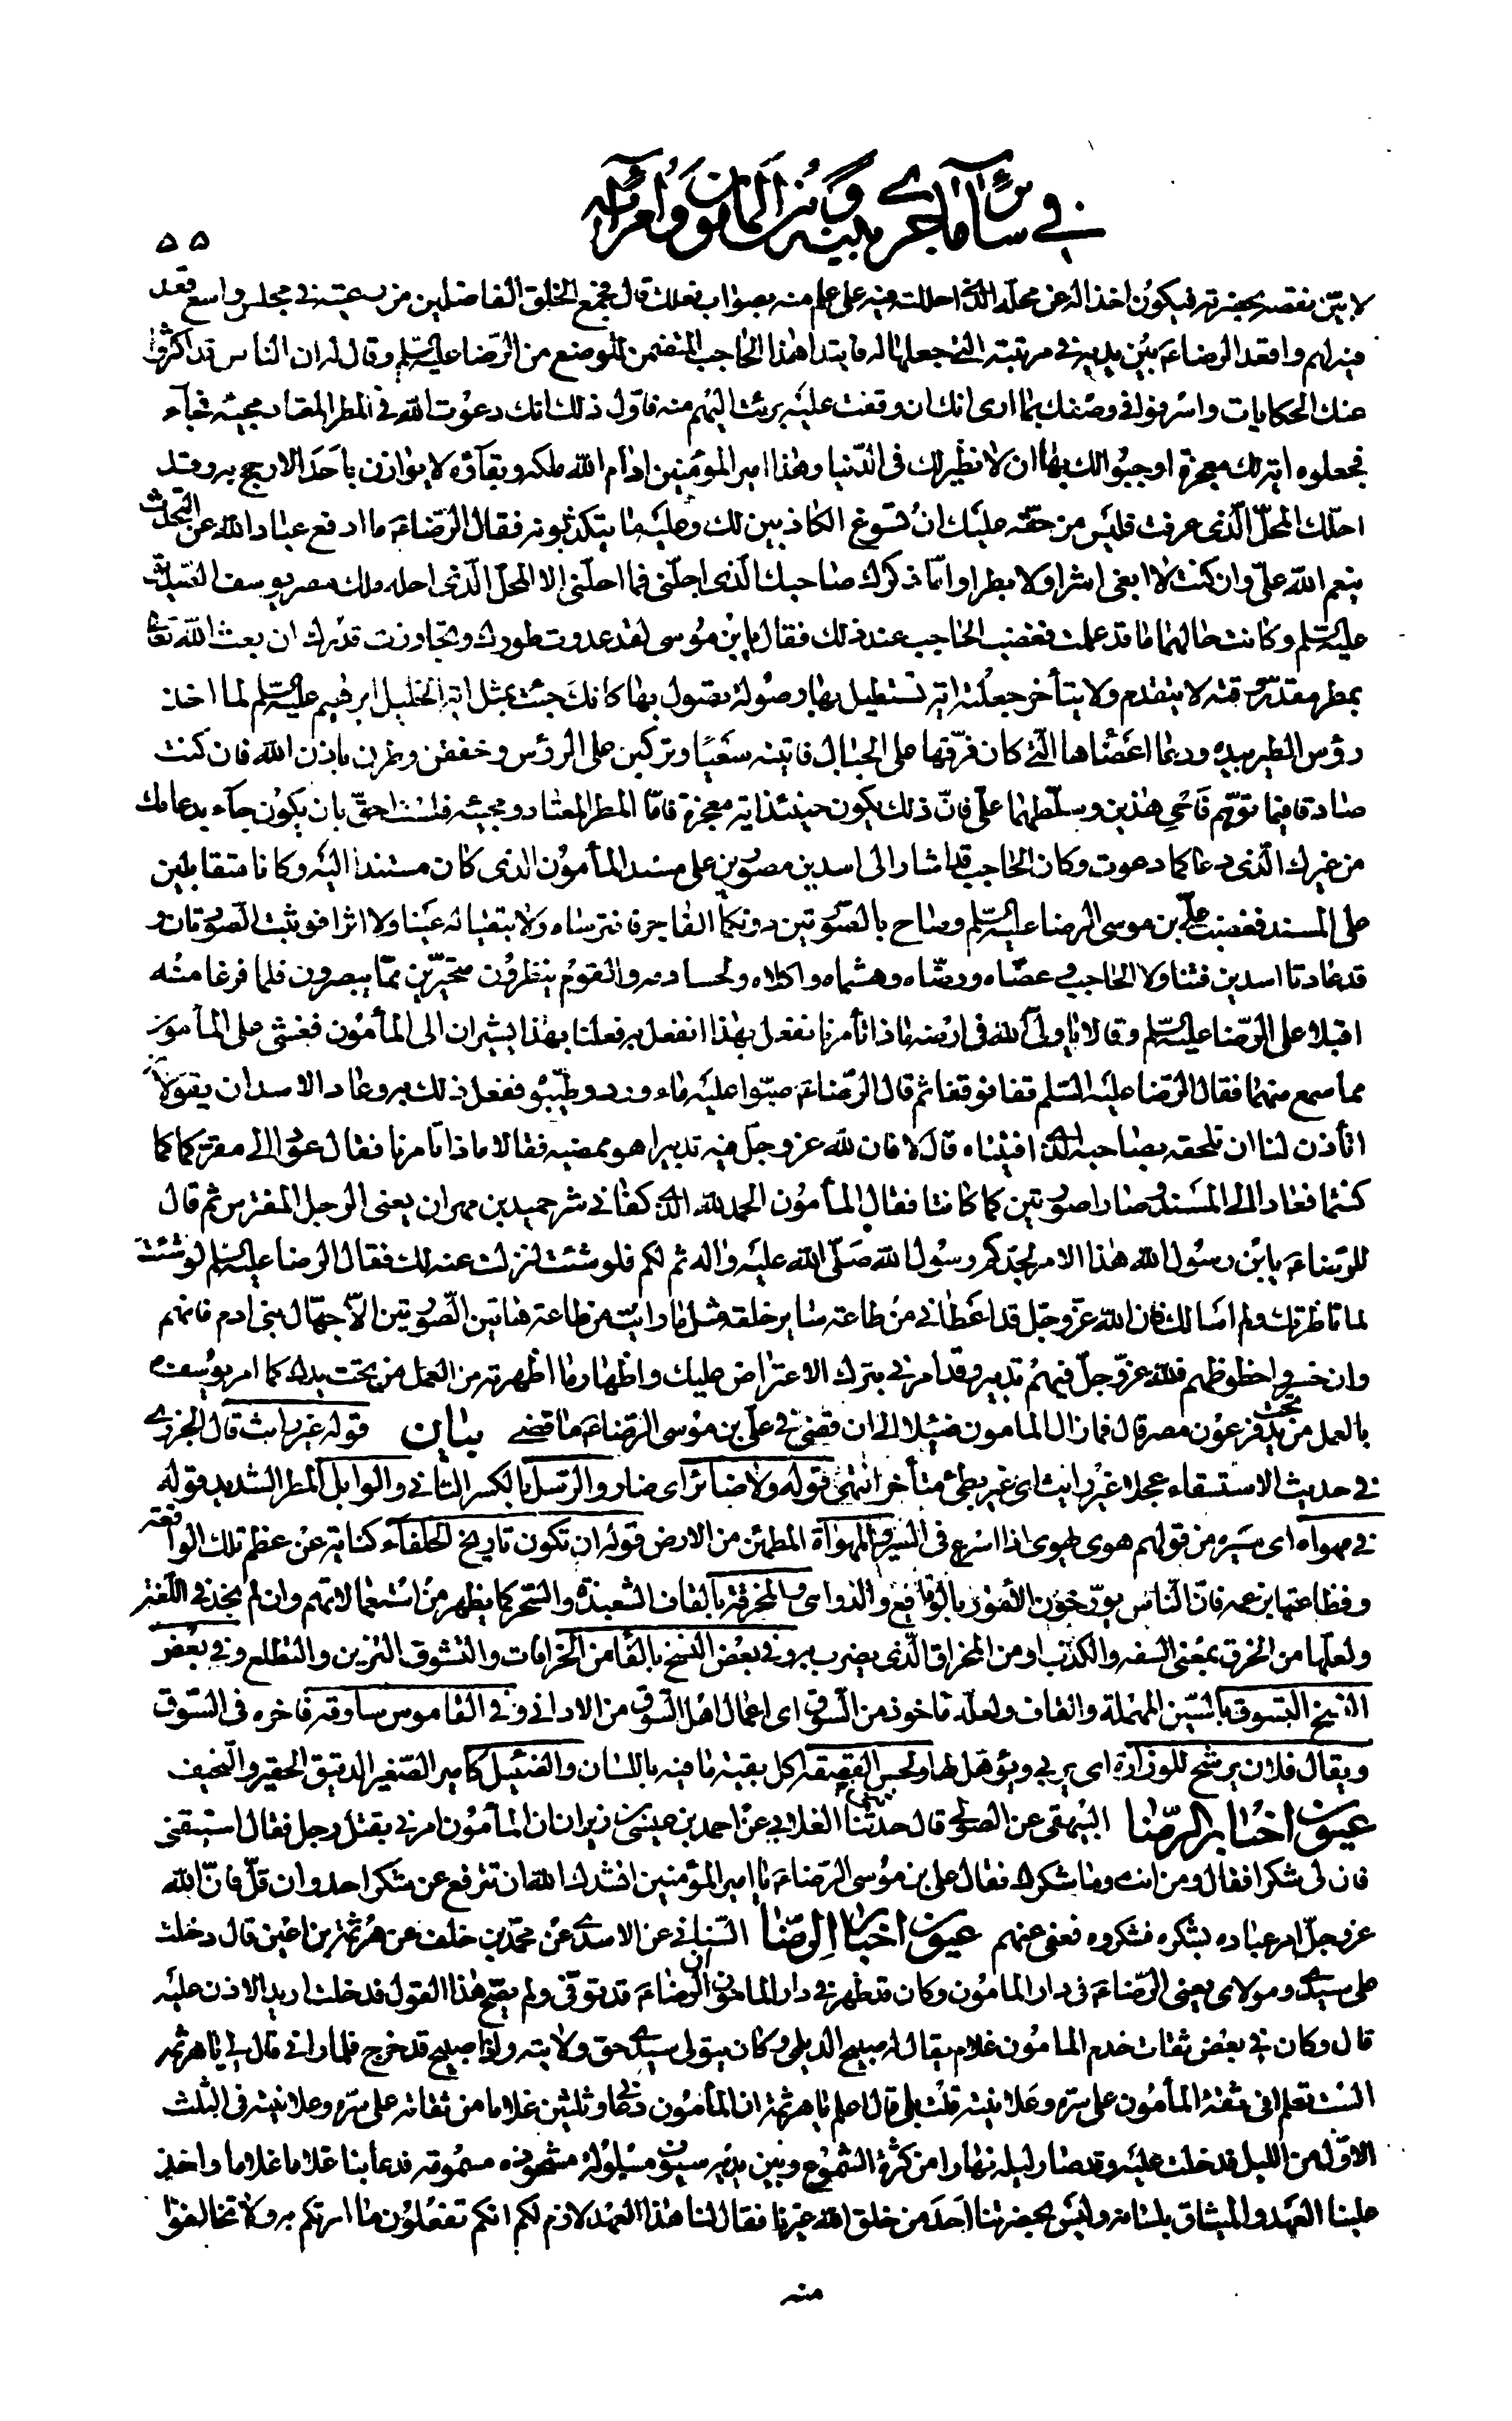 في سائر ما جرى بينه و بين المأمون وأمرائه
۵۵
لابين نقصه بحضرتهم فيكون اخذا له عن محله الذي احللته فيه على علم منهم بصواب فعلك قال فجمع الخلق الفاضلين من رعيته في مجلس واسع قعد
فيه لهم واقعد الرضاء بين يديه في مرتبته التي جعلها له فابتدا هذا الحاجب المتضمن للوضع من الرضا عليه السلم وقال له ان الناس قد اكثروا
عنك الحكايات واسرفوا في وصفك بما ارى انك ان وقفت عليه برئت اليهم منه فاول ذلك انك دعوت الله في المطر المعتاد مجيئه فجآء
فجعلوه اية لك معجزة اوجبوا لك بها ان لا نظير لك في الدنيا وهذا امير المؤمنين ادام الله ملكه وبقآؤه لا يوازن باحد الا رجح به وقد
احلك المحل الذى عرفت فليس من حقه عليك ان تسوغ الكاذبين لك وعليه ما يتكذبونه فقال الرضاء ما ادفع عباد الله عن التحدث
بنعم الله على وان كنت لا ابغى اشرا ولا بطرا واما ذكرك صاحبك الذى اجلني فما احلني الا المحل الذى احله ملك مصر يوسف الصديق
عليه السلم وكانت حالهما ما قد علمت فغضب الحاجب عند ذلك فقال يابن موسى لقد عدوت طورك وتجاوزت قدرك ان بعث الله تعالى
بمطر مقدر وقته لا يتقدم ولا يتأخر جعلته اية تستطيل بها وصولة تصول بها كانك جئت بمثل اية الخليل ابرهيم عليه السلم لما اخذ
رؤس الطير بيده ودعا اعضاها التي كان فرقها على الجبال فاتينه سعيا وتركبن على الرؤس وخفقن وطرن باذن الله فان كنت
صادقا فيما توهم فاحى هذين وسلطهما على فان ذلك يكون حينئذ اية معجزة فاما المطر المعتاد مجيئه فلست احق بان يكون جآء بدعائك
من غيرك الذى دعا كما دعوت وكان الحاجب قد اشار الى اسدين مصورين على مسند المأمون الذى كان مستندا اليه وكانا متقابلين
على المسند فغضب على بن موسى الرضا عليه السلم وصاح بالصورتين دونكما الفاجر فافترساه ولا تبقيا له عينا ولا اثرا فوثبت الصورتان و
قد عادتا اسدين فتناولا الحاجب وعضاه ورضاه وهشماه واكلاه ولحسا دمه والقوم ينظرون متحيرين مما يبصرون فلما فرغا منه
اقبلا على الرضا عليه السلم وقالا يا ولى الله في ارضه ماذا تأمرنا نفعل بهذا انفعل به فعلنا بهذا يشيران الى المأمون فغشى على المأمون
مما سمع منهما فقال الرضا عليه السلم قفا فوقفا ثم قال الرضاء صبوا عليه ماء ورد وطيبوه ففعل ذلك به وعاد الاسدان يقولان
اتأذن لنا ان نلحقه بصاحبه الذي افنيناه قال لا فان لله عز وجل فيه تدبيرا هو ممضيه فقالا ماذا تأمرنا فقال عودا الى مقركما كما
كنتما فعادا الى المسند وصارا صورتين كما كانتا فقال المأمون الحمد لله الذي كفاني شر حميد بن مهران يعنى الرجل المفترس ثم قال
للرضاء يابن رسول الله هذا الامر لجدكم رسول الله صلى الله عليه واله ثم لكم فلو شئت لنزلت عنه لك فقال الرضا عليه السلم لو شئت
لما ناظرتك ولم اسالك فان الله عز وجل قد اعطاني من طاعة ساير خلقه مثل ما رايت من طاعة هاتين الصورتين الا جهال بني ادم فانهم
وان خسروا حظوظهم فلله عز وجل فيهم تدبير وقد امرني بترك الاعتراض عليك واظهار ما اظهرته من العمل من تحت يدك كما امر يوسف
بالعمل من تحت يد فرعون مصر قال فما زال المامون ضئيلا الى ان قضى في على بن موسى الرضاء ما قضى بيان قوله غير رايث قال الجزري
في حديث الاستسقاء عجلا غير رايث اى غير بطئ متأخر انتهى قوله ولا ضائر اى ضار والرسل بالكسر التاني والوابل المطر الشديد قوله
في مهواه اى مسيره من قولهم هوى يهوى اذا اسرع في السير والمهواة المطمئن من الارض قوله ان تكون تاريخ الخلفآء كناية عن عظم تلك الواقعة
وفظاعتها بزعمه فان الناس يورخون الامور بالوقايع والدواهي والمخرقة بالقاف الشعبذة والسحر كما يظهر من استعمالاتهم وان لم نجد في اللغة
ولعلها من الخرق بمعنى السفه والكذب او من المخراق الذى يضرب به وفي بعض النسخ بالفا من الخرافات والتشوق التزين والتطلع وفي بعض
النسخ التسوق بالسين المهملة والقاف ولعله ماخوذ من السوق اى اعمال اهل السوق من الاداني وفي القاموس ساوقه فاخره في السوق
ويقال فلان يرشح للوزارة اى يربى ويؤهل لها ولحس القصعة اكل بقية ما فيه باللسان والضئيل كامير الصغير الدقيق الحقير والنحيف
عيون اخبار الرضا البيهقى عن الصولى قال حدثنا الغلابي عن احمد بن عيسى بن زيد ان المأمون امر بقتل رجل فقال استبقني
فان لى شكرا فقال ومن انت وما شكرك فقال على بن موسى الرضاء يا امير المؤمنين انشدك الله ان تترفع عن شكر احد وان قل فان الله
عز وجل امر عباده بشكره فشكروه فعفى عنهم عيون اخبار الرضا السناني عن الاسدي عن محمد بن خلف عن هرثمة بن اعين قال دخلت
على سيدي ومولاى يعنى الرضاء في دار المامون وكان قد ظهر في دار المامون ان الرضاء قد توفى ولم يصح هذا القول فدخلت اريد الاذن عليه
قال وكان في بعض ثقات خدم المامون غلام يقال له صبيح الديلمى وكان يتولى سيدي حق ولايته واذا صبيح قد خرج فلما راني قال لى يا هرثمة
الست تعلم اني ثقة المأمون على سره وعلانيته قلت بلى قال اعلم يا هرثمة ان المأمون دعاني وثلثين غلاما من ثقاته على سره وعلانيته في الثلث
الاول من الليل فدخلت عليه وقد صار ليله نهارا من كثرة الشموع وبين يديه سيوف مسلولة مشحوذة مسمومة فدعا بنا غلاما غلاما واخذ
علينا العهد والميثاق بلسانه وليس بحضرتنا احد من خلق الله غيرنا فقال لنا هذا العهد لازم لكم انكم تفعلون ما امرتكم به ولا تخالفوا
منه